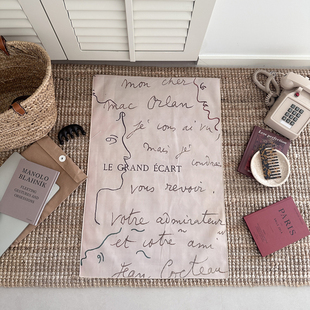 mon cher
Mac Orlan
je vous ai vu
mais je
voudrais
LE GRAND ÉCART
vous revoir.
votre admirateur
et votre ami
Jean Cocteau
MANOLO
BLAHNIK
PARIS